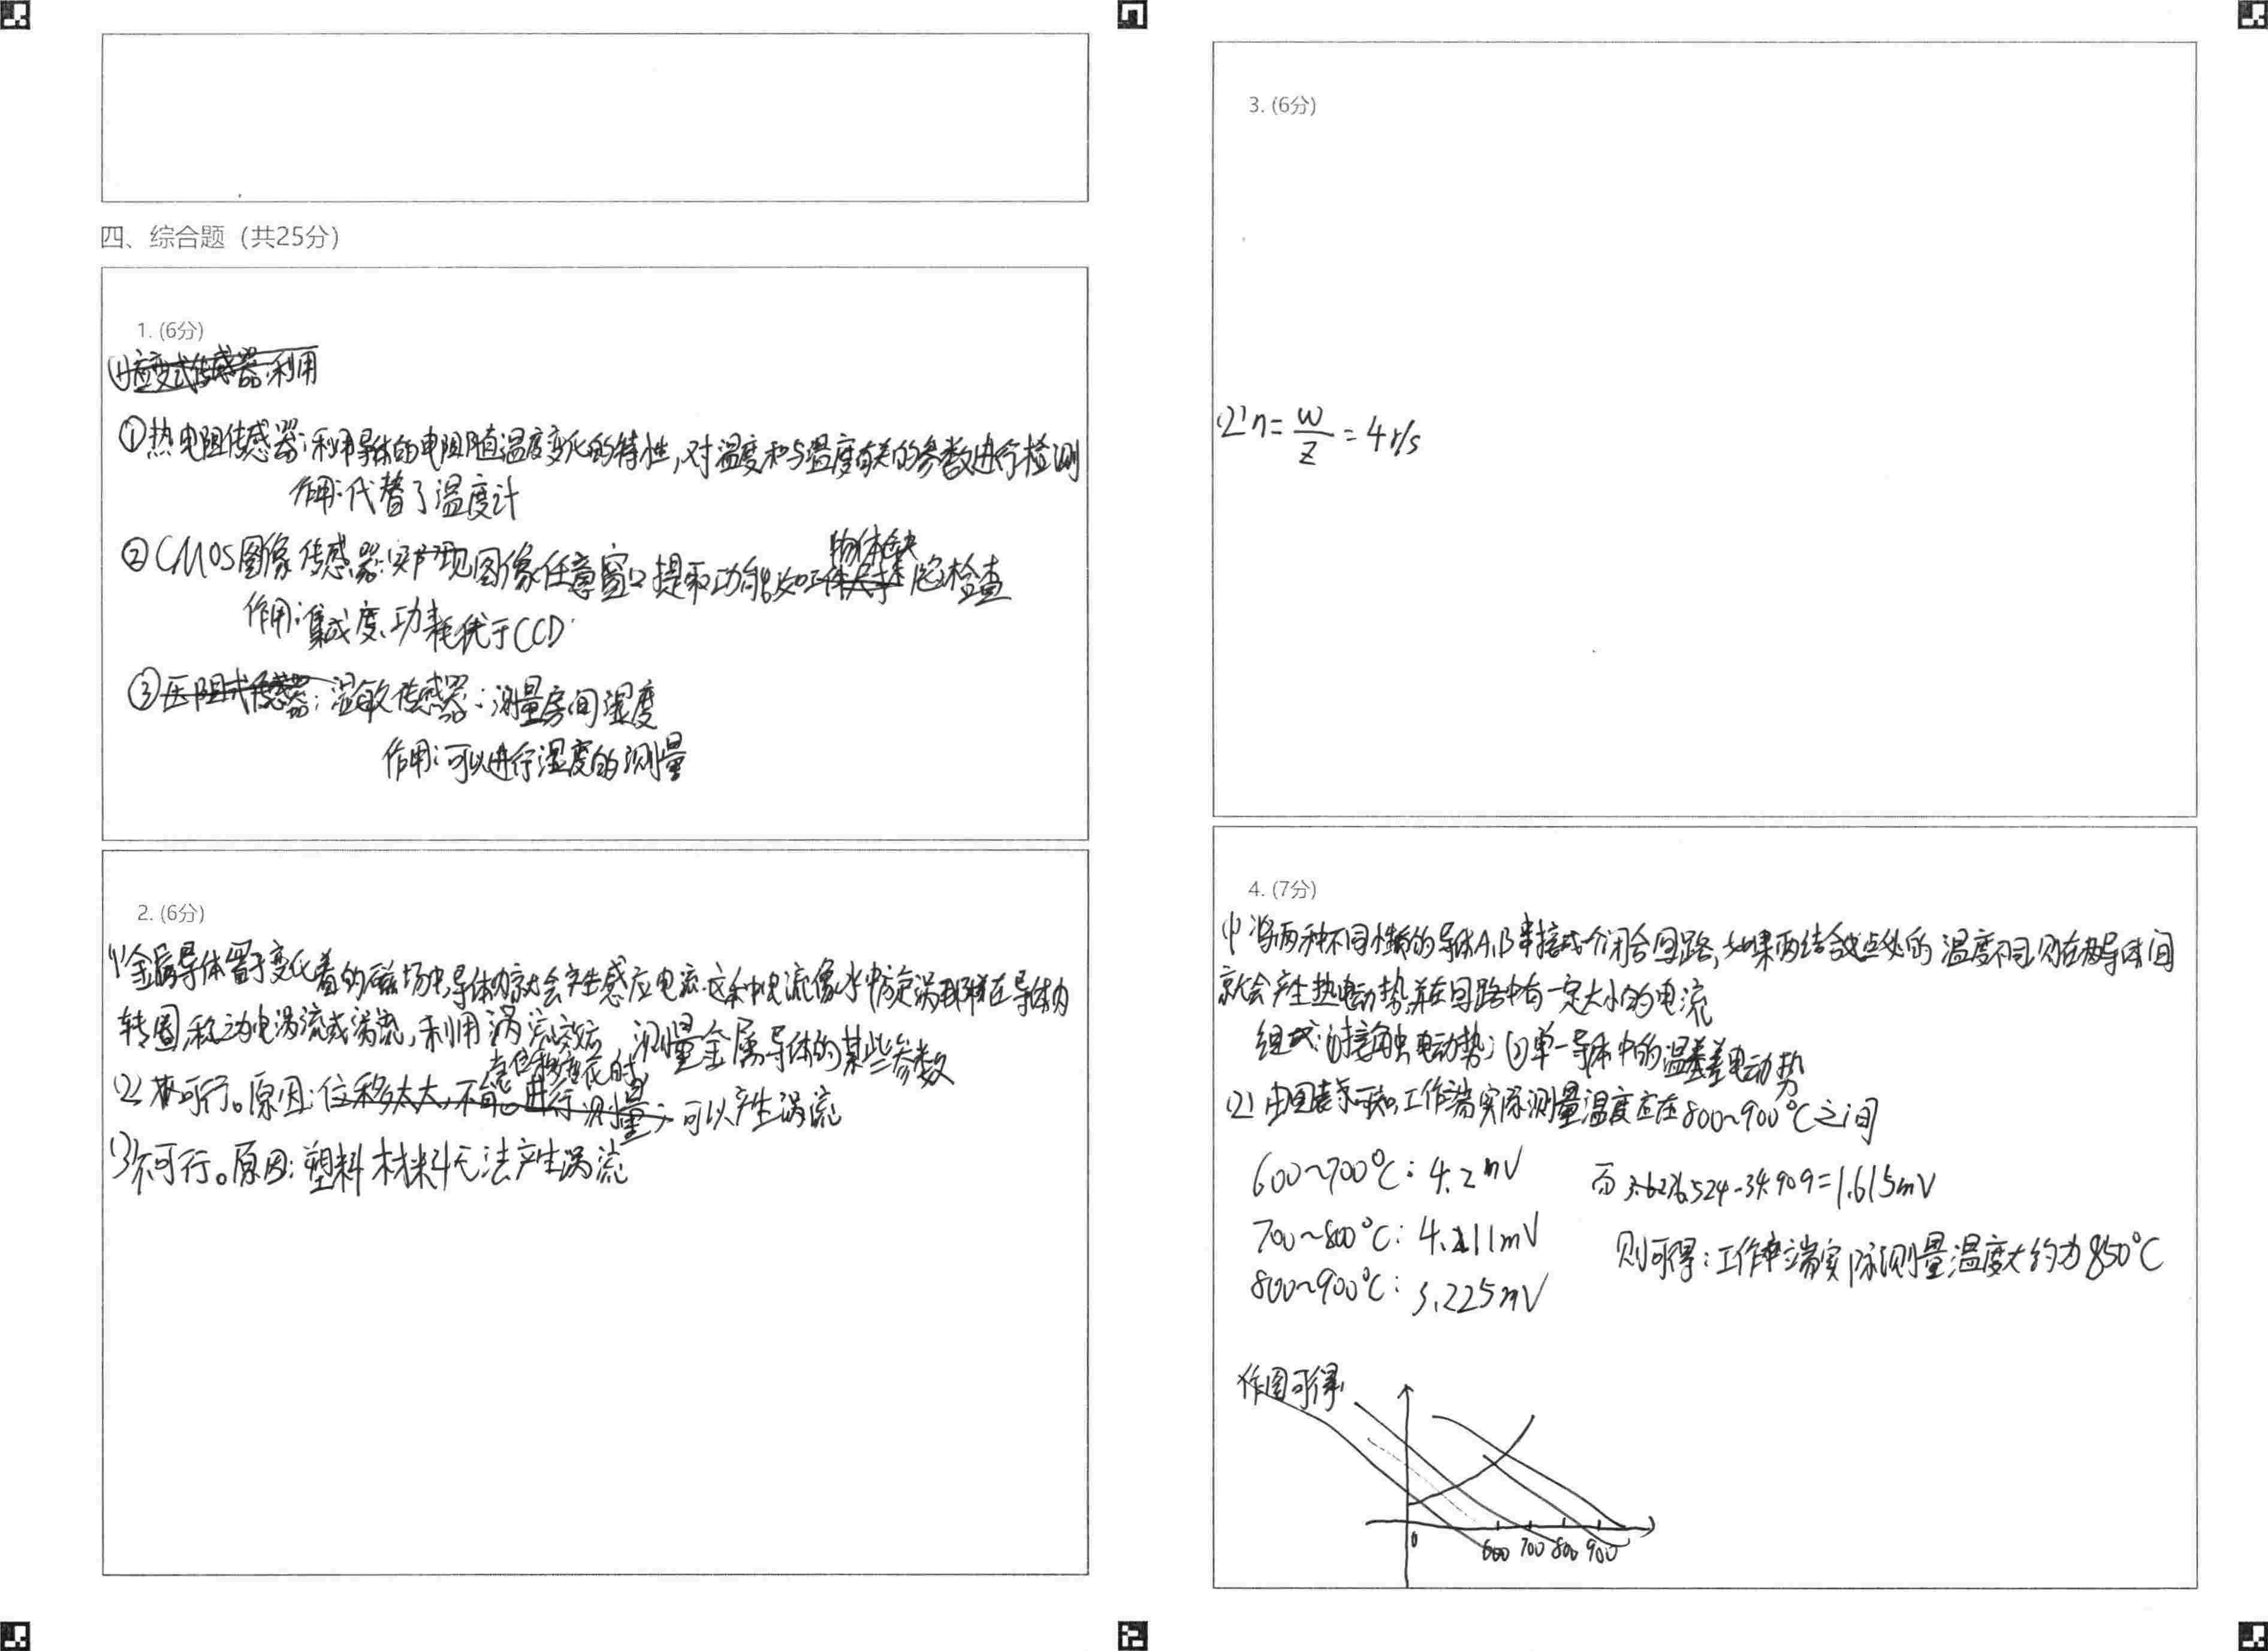 四、综合题（共25分）
1. (6分)
(1)应变式传感器:利用
①热电阻传感器:利用导体的电阻随温度变化的特性,对温度和与温度有关的参数进行检测
作用:代替了温度计
②CMOS图像传感器:实现图像任意窗口提取功能,如 物体缺陷检查
作用:集成度、功耗优于CCD
③压阻式传感器:湿敏传感器:测量房间湿度
作用:可以进行湿度的测量
2. (6分)
(1)金属导体置于变化着的磁场中,导体内就会产生感应电流.这种电流像水中旋涡那样在导体内
转圈,称之为电涡流或涡流,利用涡流效应,测量金属导体的某些参数
(2)可行。原因:位移太大,不能进行测量;当位移变化时,可以产生涡流
(3)不可行。原因:塑料材料无法产生涡流
3. (6分)
(2) n=w/z=4r/s
4. (7分)
(1)将两种不同性质的导体A,B串接成一个闭合回路,如果两结合点处的温度不同,则在两导体间
就会产生热电动势,并在回路中有一定大小的电流
组成:(1)接触电动势;(2)单一导体中的温差电动势
(2)由图表可知,工作端实际测量温度应在800~900℃之间
600~700℃: 4.2mV
而36.524-34.909=1.615mV
700~800℃: 4.11mV
则可得:工作端实际测量温度大约为850℃
800~900℃: 3.225mV
作图可得:
0 600 700 800 900